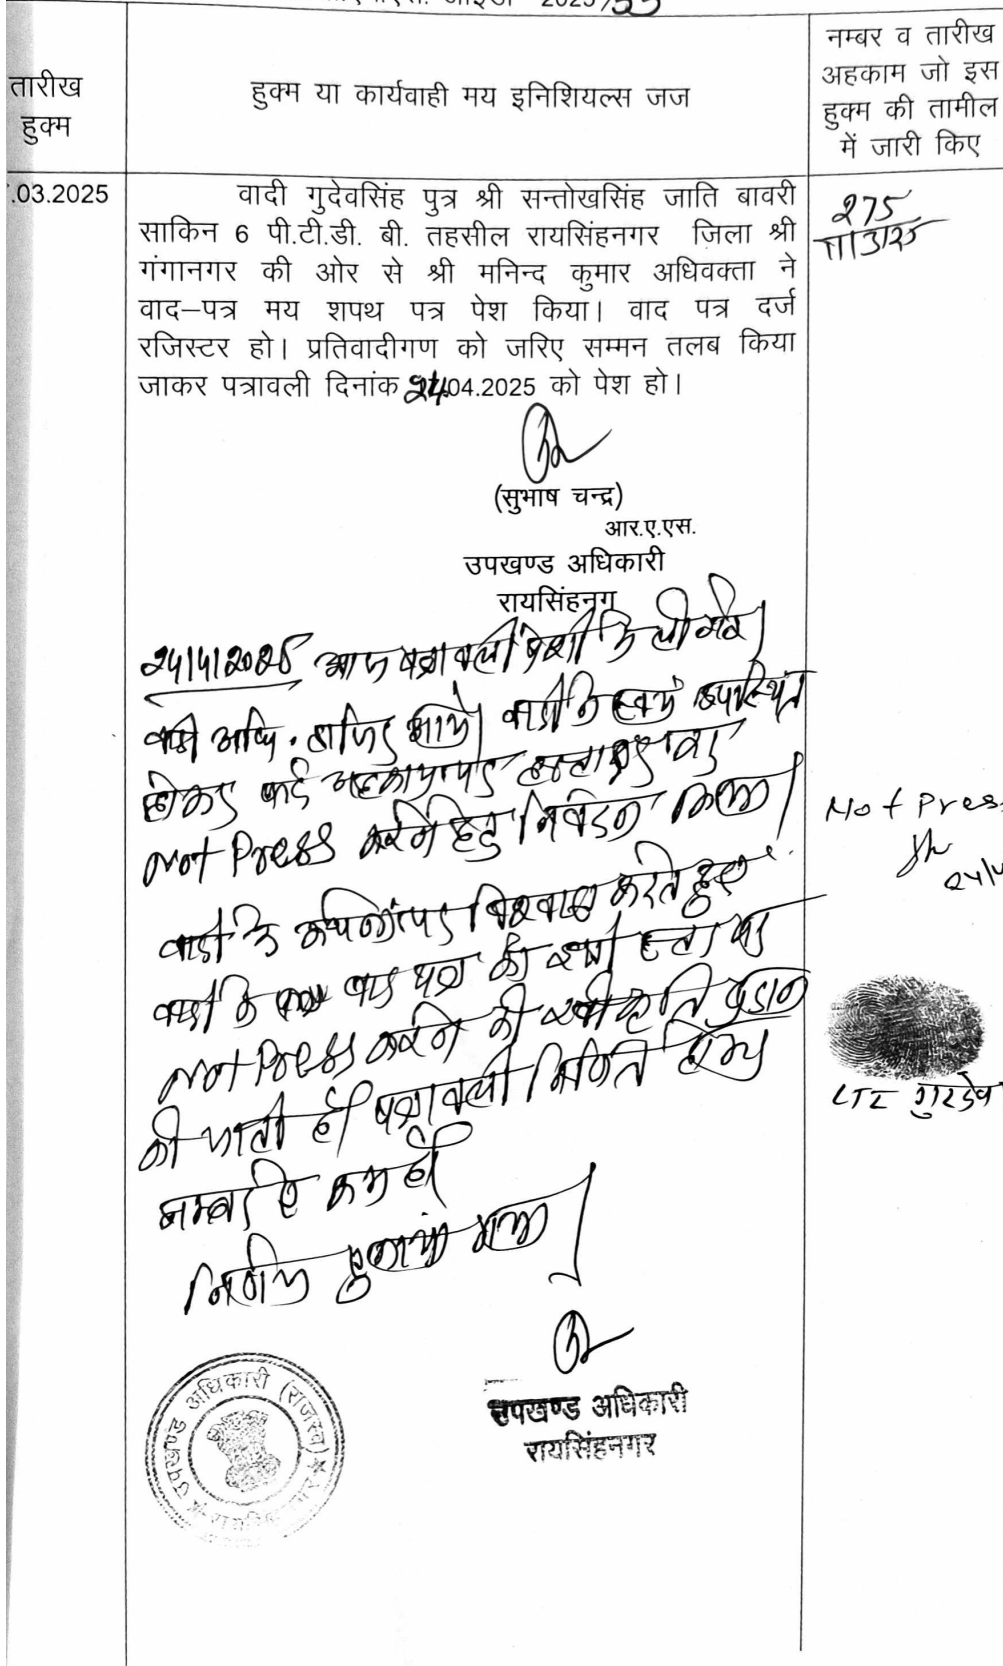 2025/53
तारीख
हुक्म
हुक्म या कार्यवाही मय इनिशियल्स जज
नम्बर व तारीख
अहकाम जो इस
हुक्म की तामील
में जारी किए
.03.2025
वादी गुदेवसिंह पुत्र श्री सन्तोखसिंह जाति बावरी
साकिन 6 पी.टी.डी. बी. तहसील रायसिंहनगर जिला श्री
गंगानगर की ओर से श्री मनिन्द कुमार अधिवक्ता ने
वाद–पत्र मय शपथ पत्र पेश किया। वाद पत्र दर्ज
रजिस्टर हो। प्रतिवादीगण को जरिए सम्मन तलब किया
जाकर पत्रावली दिनांक 24.04.2025 को पेश हो।
275
11/3/25
(सुभाष चन्द्र)
आर.ए.एस.
उपखण्ड अधिकारी
रायसिंहनग
24/4/2025 आज पत्रावली पेशी में ली गई।
वादी अधि. हाजिर आये। वादी ने स्वयं उपस्थित
होकर फर्द अहकाम पर हस्ताक्षर कर
not Press करने हेतु निवेदन किया।
वादी के कथनों पर विश्वास करते हुए
वादी के वाद पत्र को इसी स्तर पर
not Press करने की स्वीकृति प्रदान
की जाती है। पत्रावली निर्णित होकर
नम्बर से कम हो।
निर्णय सुनाया गया।
Not Press
24/4
LTI गुरदेव
उपखण्ड अधिकारी
रायसिंहनगर
उपखण्ड अधिकारी (राजस्व)